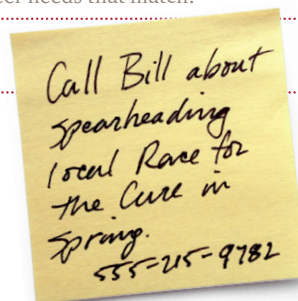 eer needs that match.
Call Bill about
spearheading
local Race for
the Cure in
Spring.
555-215-9782